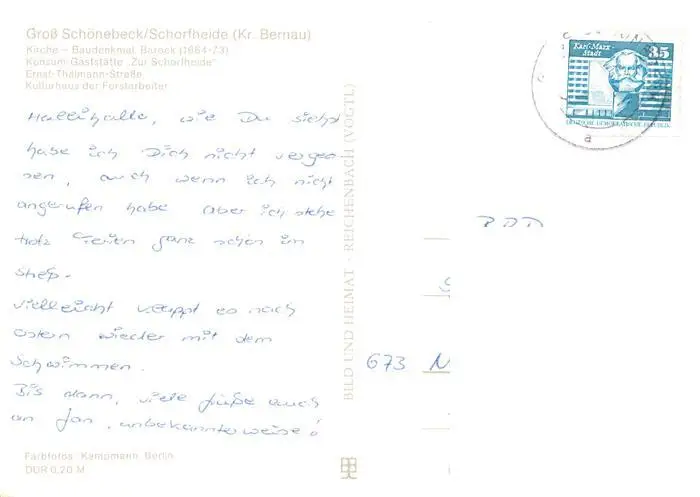 Groß Schönebeck/Schorfheide (Kr. Bernau)
Kirche – Baudenkmal, Barock (1664-73)
Konsum-Gaststätte "Zur Schorfheide"
Ernst-Thälmann-Straße
Kulturhaus der Forstarbeiter
Hallihallo, wie Du siehst
habe ich Dich nicht verges
sen, auch wenn ich nicht
angerufen habe aber ich stehe
trotz Ferien ganz schön im
Streß.
Vielleicht klappt es nach
Ostern wieder mit dem
Schwimmen.
Bis dann, viele Grüße auch
an Jan, unbekannterweise!
Farbfotos: Kampmann, Berlin
DDR 0,20 M
BILD UND HEIMAT · REICHENBACH (VOGTL)
Karl-Marx-
Stadt
35
DEUTSCHE DEMOKRATISCHE REPUBLIK
a
673 N